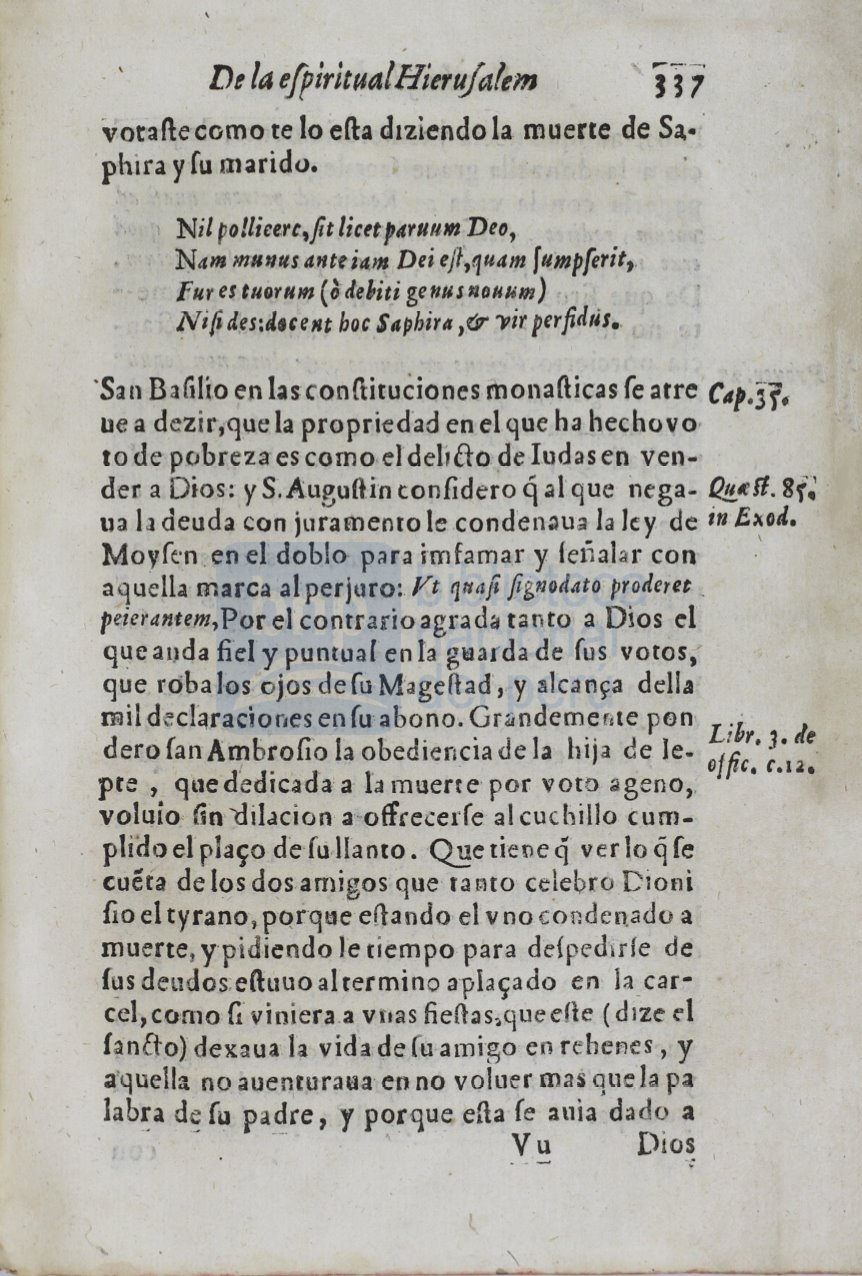 De la eſpiritual Hieruſalem 337
votaſte como te lo eſta diziendo la muerte de Sa-
phira y ſu marido.
Nil pollicere, ſit licet paruum Deo,
Nam munus ante iam Dei eſt, quam ſumpſerit,
Fur es tuorum (ò debiti genus nouum)
Niſi des: docent hoc Saphira, & vir perfidus.
San Baſilio en las conſtituciones monaſticas ſe atre Cap. 35.
ue a dezir, que la propriedad en el que ha hecho vo
to de pobreza es como el delicto de Iudas en ven-
der a Dios: y S. Auguſtin conſidero q̃ al que nega- Quæſt. 85.
ua la deuda con juramento le condenaua la ley de in Exod.
Moyſen en el doblo para imfamar y ſeñalar con
aquella marca al perjuro: Vt quaſi ſigno dato proderet
peierantem, Por el contrario agrada tanto a Dios el
que anda fiel y puntual en la guarda de ſus votos,
que roba los ojos de ſu Mageſtad, y alcança della
mil declaraciones en ſu abono. Grandemente pon Libr. 3. de
dero ſan Ambroſio la obediencia de la hija de Ie- offic. c.12.
pte, que dedicada a la muerte por voto ageno,
voluio ſin dilacion a offrecerſe al cuchillo cum-
plido el plaço de ſu llanto. Que tiene q̃ ver lo q̃ ſe
cuẽta de los dos amigos que tanto celebro Dioni
ſio el tyrano, porque eſtando el vno condenado a
muerte, y pidiendo le tiempo para deſpedirſe de
ſus deudos eſtuuo al termino aplaçado en la car-
cel, como ſi viniera a vnas fieſtas, que eſte (dize el
ſancto) dexaua la vida de ſu amigo en rehenes, y
aquella no auenturaua en no voluer mas que la pa
labra de ſu padre, y porque eſta ſe auia dado a
Vu Dios